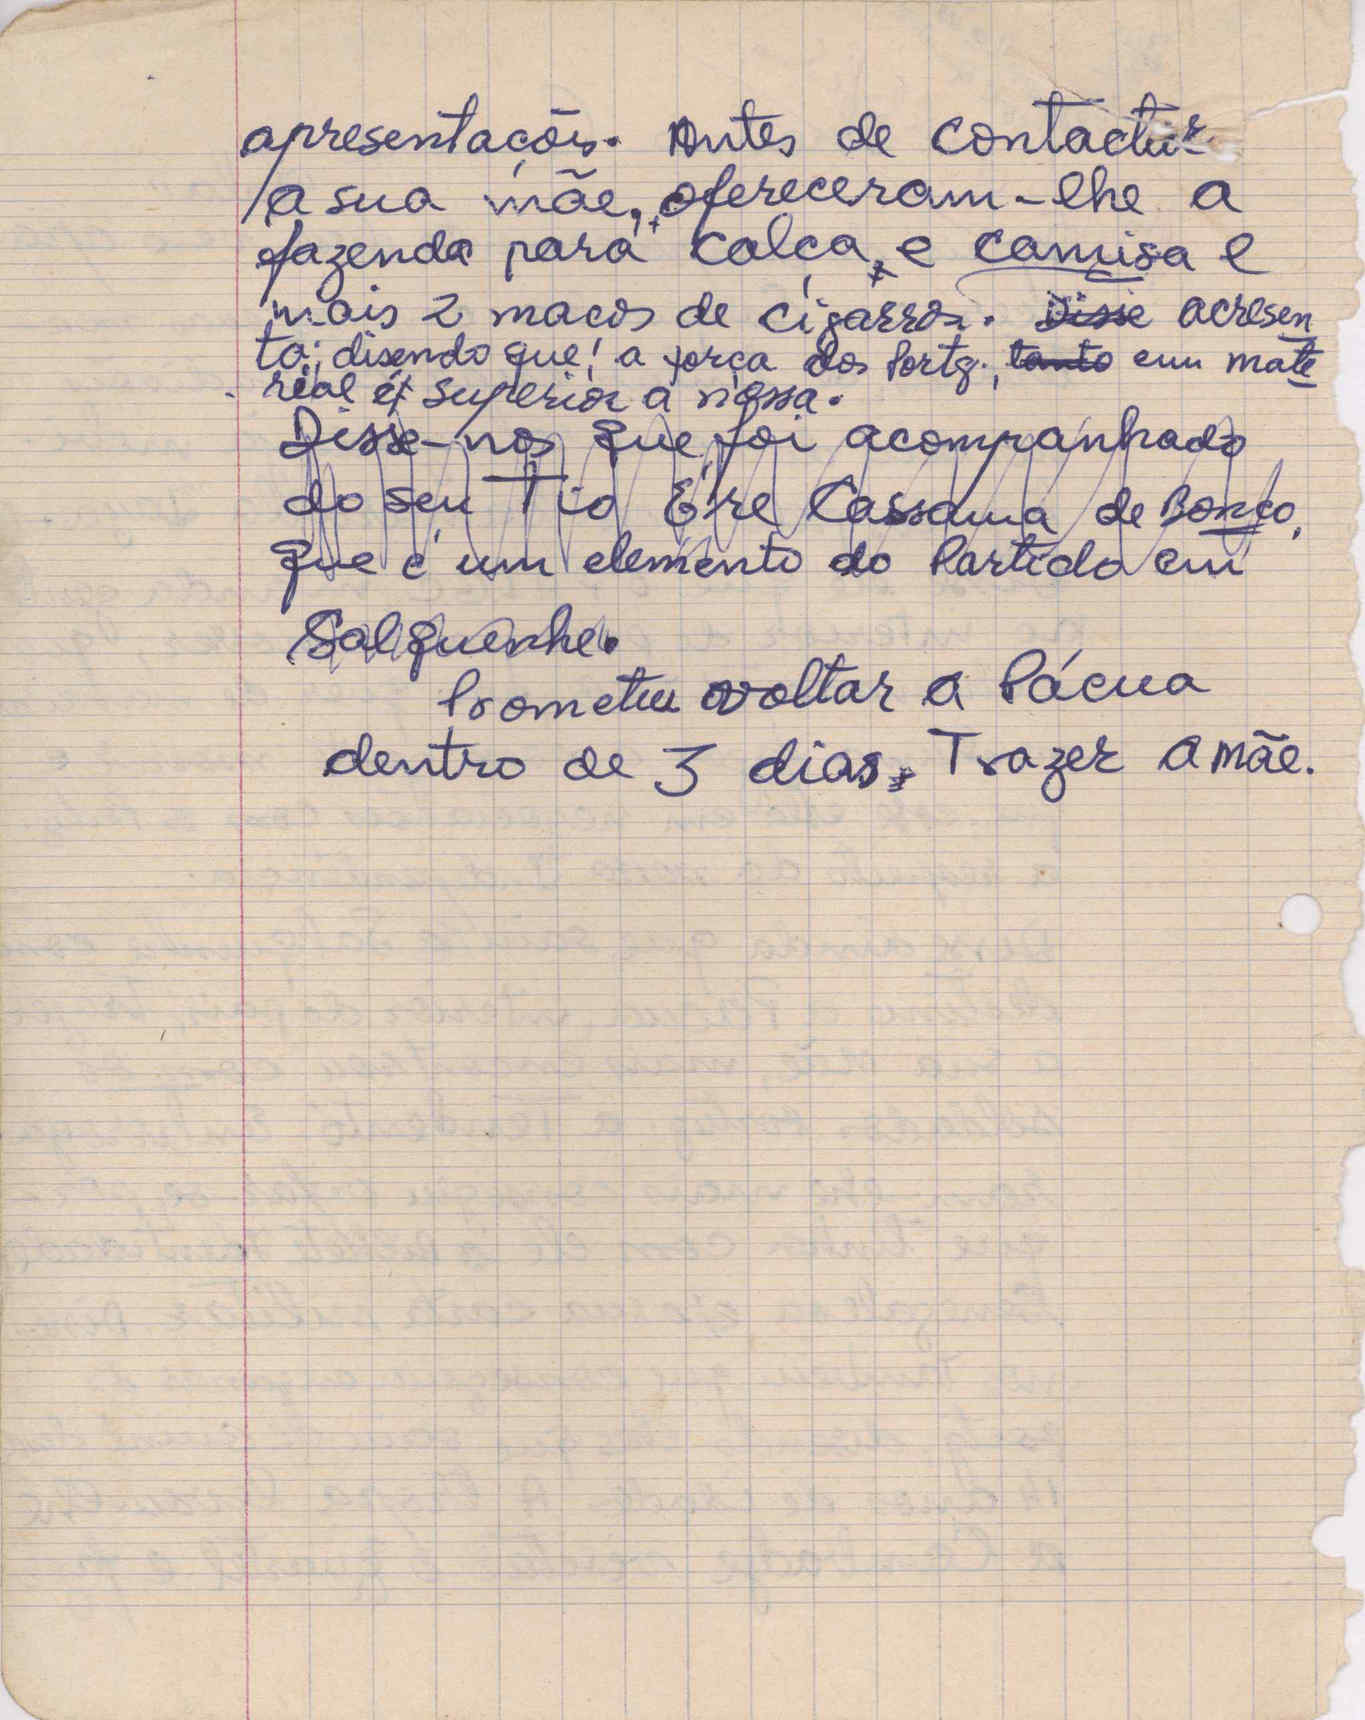 apresentações. Antes de contactar
a sua mãe, ofereceram-lhe a
fazenda para calça, e camisa e
mais 2 maços de cigarros. Disse acresen
ta; disendo que! a força dos Portg., tanto em mate
real é superior a nossa.
Disse-nos que foi acompanhado
do seu Tio Cassama de
que é um elemento do Partido em
Salquenhe.
Prometeu voltar a Pácua
dentro de 3 dias. Trazer a mãe.